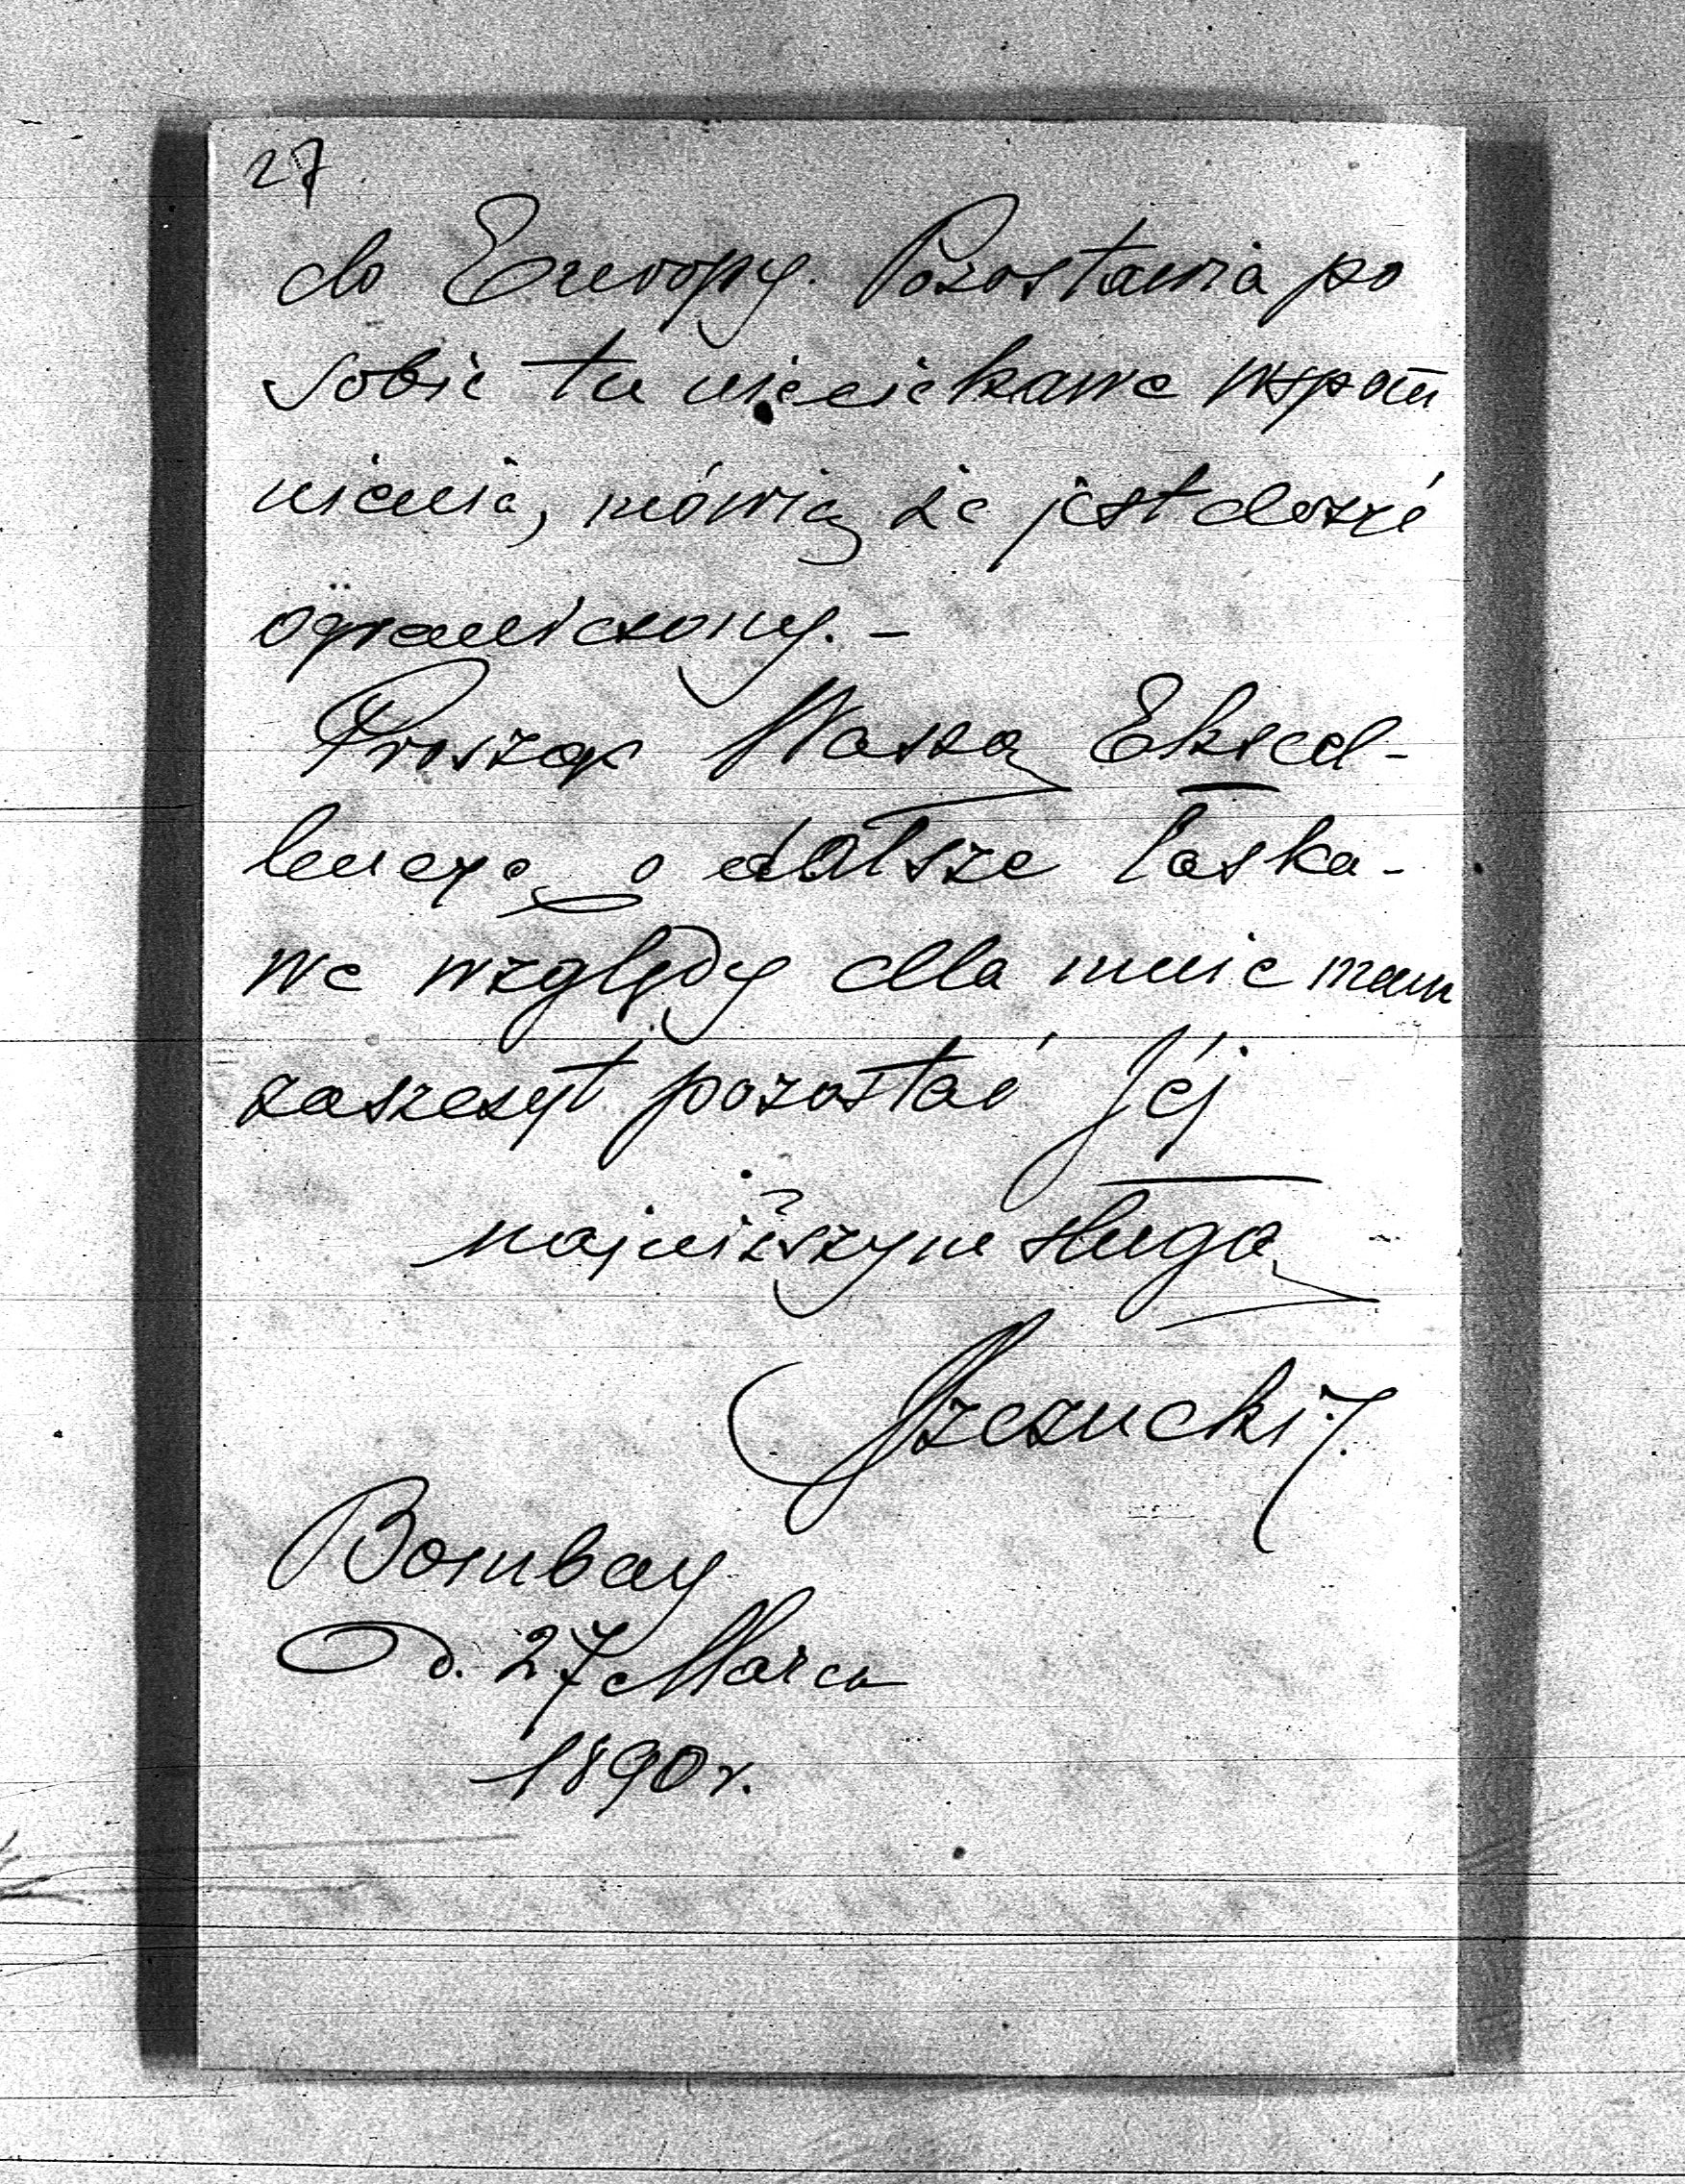 27
do Europy. Pozostawia po
sobie tu nieciekawe wspom
nienia, mówią że jest dosyć
ograniczony. –
Prosząc Waszą Ekscel-
lencyę o dalsze łaska-
we względy dla mnie mam
zaszczyt pozostać Jéj
najniższym sługą
Bombay
d. 27 Marca
1890 r.